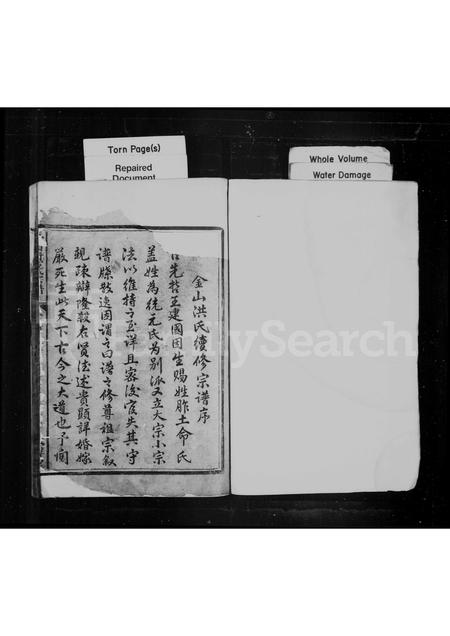 Torn Page(s)
Repaired
Document
Whole Volume
Water Damage
金山洪氏續修宗譜序
先哲王建國因生賜姓胙土命氏
蓋姓為統元氏為別派又立大宗小宗
法以維持之至詳且密後官失其守
譜牒散逸因謂之曰譜之修尊祖宗敘
親疎辯隆殺右賢法述貴顯詳婚嫁
嚴死生此天下古今之大道也予閱
FamilySearch